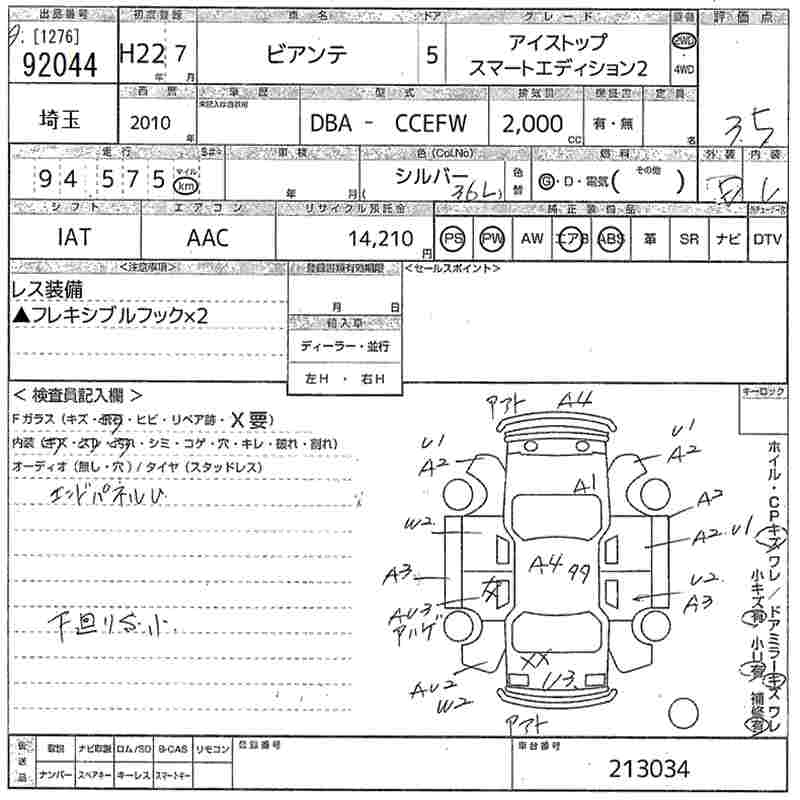 出品番号 初度登録 車名 ドア グレード 装備 評価点
[1276]
92044 H22 7 ビアンテ 5 アイストップ
スマートエディション2 2WD・4WD
年 月
西暦 車歴 型式 排気量 保証書 定員
未記入は自家用
埼玉 2010年 DBA - CCEFW 2,000cc 有・無 名 3.5
走行 車検 色(Col.No) 燃料 外装 内装
94 575 マイル km 年 月 シルバー 36L 色替 G・D・電気( その他 )
シフト エアコン リサイクル預託金 純正装備品
IAT AAC 14,210円 PS PW AW エアB ABS 革 SR ナビ DTV
<注意事項> 登録書類有効期限 <セールスポイント>
レス装備
▲フレキシブルフック×2
月 日
輸入車
ディーラー・並行
左H ・ 右H
< 検査員記入欄 > キーロック
Fガラス(キズ・飛石・ヒビ・リペア跡・X要)
内装(キズ・スレ・汚れ・シミ・コゲ・穴・キレ・破れ・割れ)
オーディオ(無し・穴)/タイヤ(スタッドレス)
エンドパネルU
下回りS小
アアト A4
U1 A2
U1 A2
A1
A2
W2
A2 U1
A3
A4 99
U2 A3
AU3
アハゲ
AU2
W2
XX
U3
アアト
ホイル・CPキズワレ/ドアミラーキズワレ
小キズ有 小U有 補修有
後送品 取説 ナビ取説 ロム/SD B-CAS リモコン 登録番号 車台番号
ナンバー スペアキー キーレス スマートキー 213034